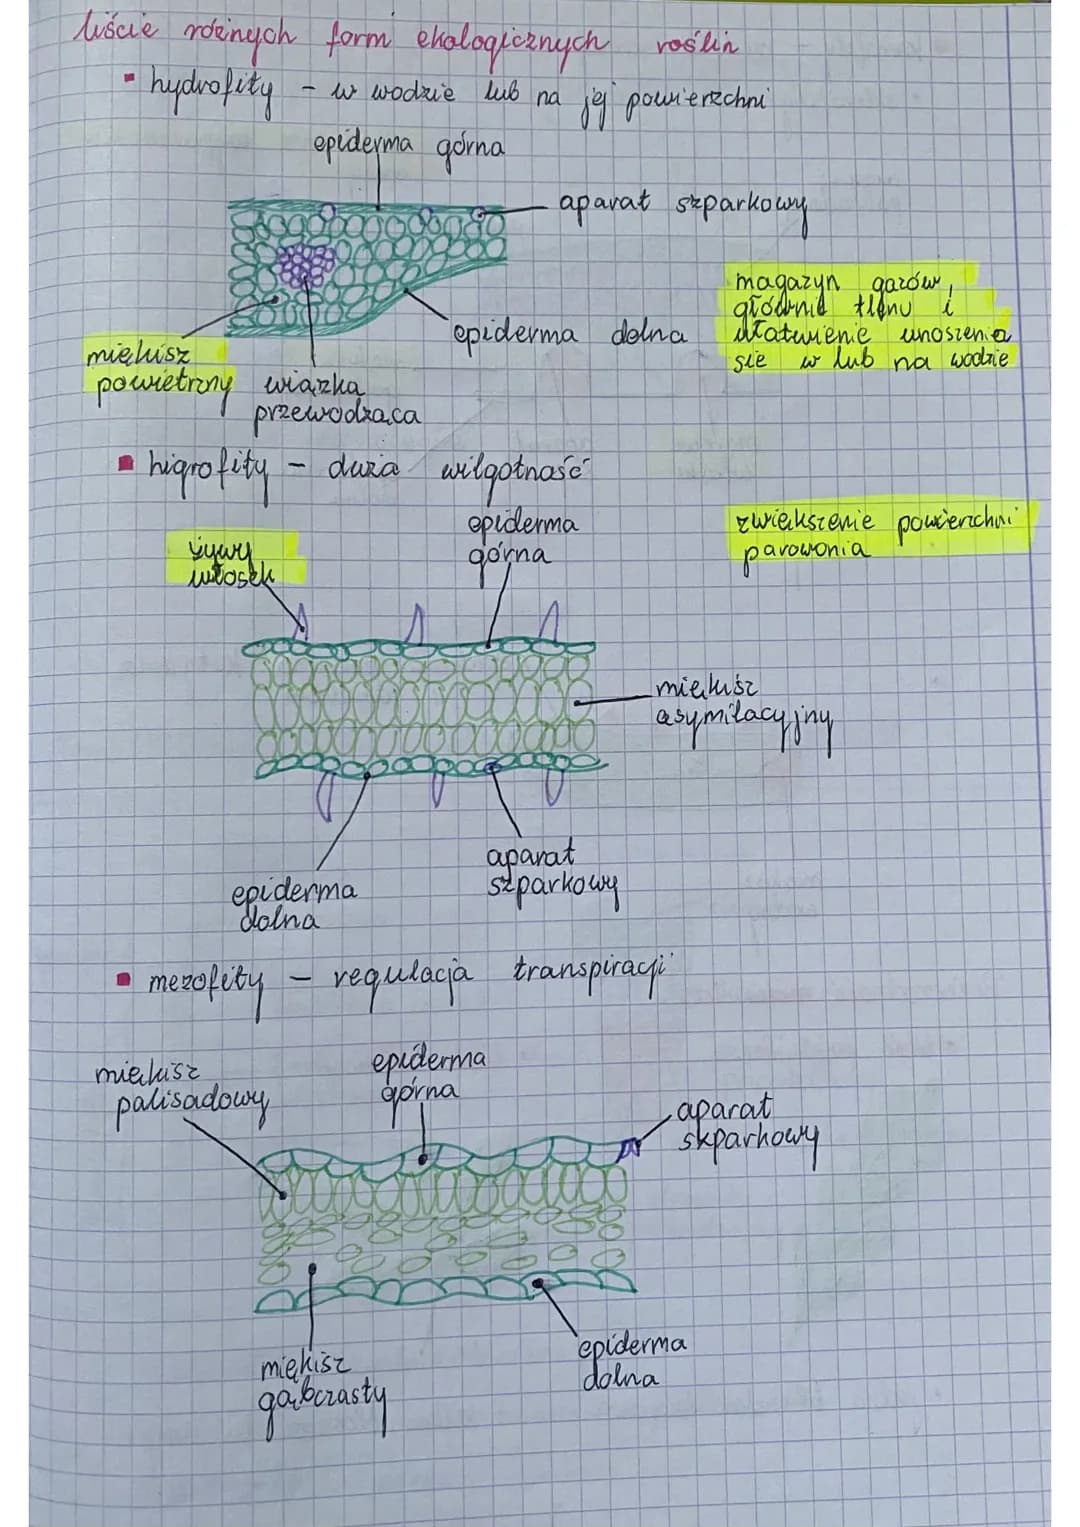 liście różnych form ekologicznych roślin
▪ hydrofity - w wodzie lub na jej powierzchni
epiderma górna
aparat szparkowy
magazyn gazów,
głównie tlenu i
ułatwienie unoszenia
się w lub na wodzie
epiderma dolna
miękisz
powietrzny
wiązka
przewodząca
▪ higrofity - duża wilgotność
epiderma
górna
zwiększenie powierzchni
parowania
żywy
włosek
miękisz
asymilacyjny
aparat
szparkowy
epiderma
dolna
▪ mezofity - regulacja transpiracji
miękisz
palisadowy
epiderma
górna
aparat
skparkowy
epiderma
dolna
miękisz
gąbczasty